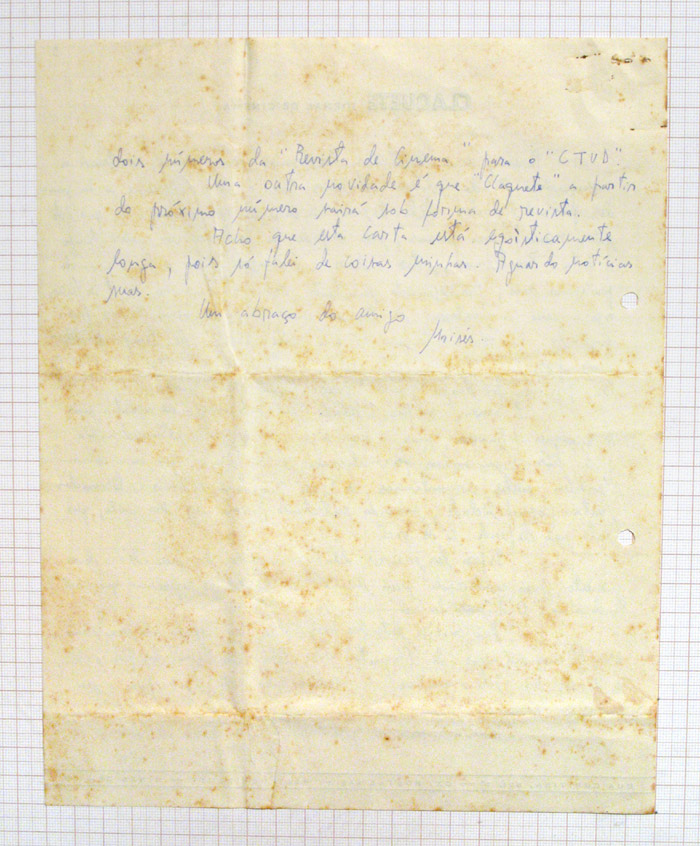 dois números da "Revista de Cinema" para o "CTVD".
Uma outra novidade é que "Claquete" a partir
do próximo número sairá sob forma de revista.
Acho que esta carta está egoìsticamente
longa, pois só falei de coisas minhas. Aguardo notícias
suas.
Um abraço do amigo